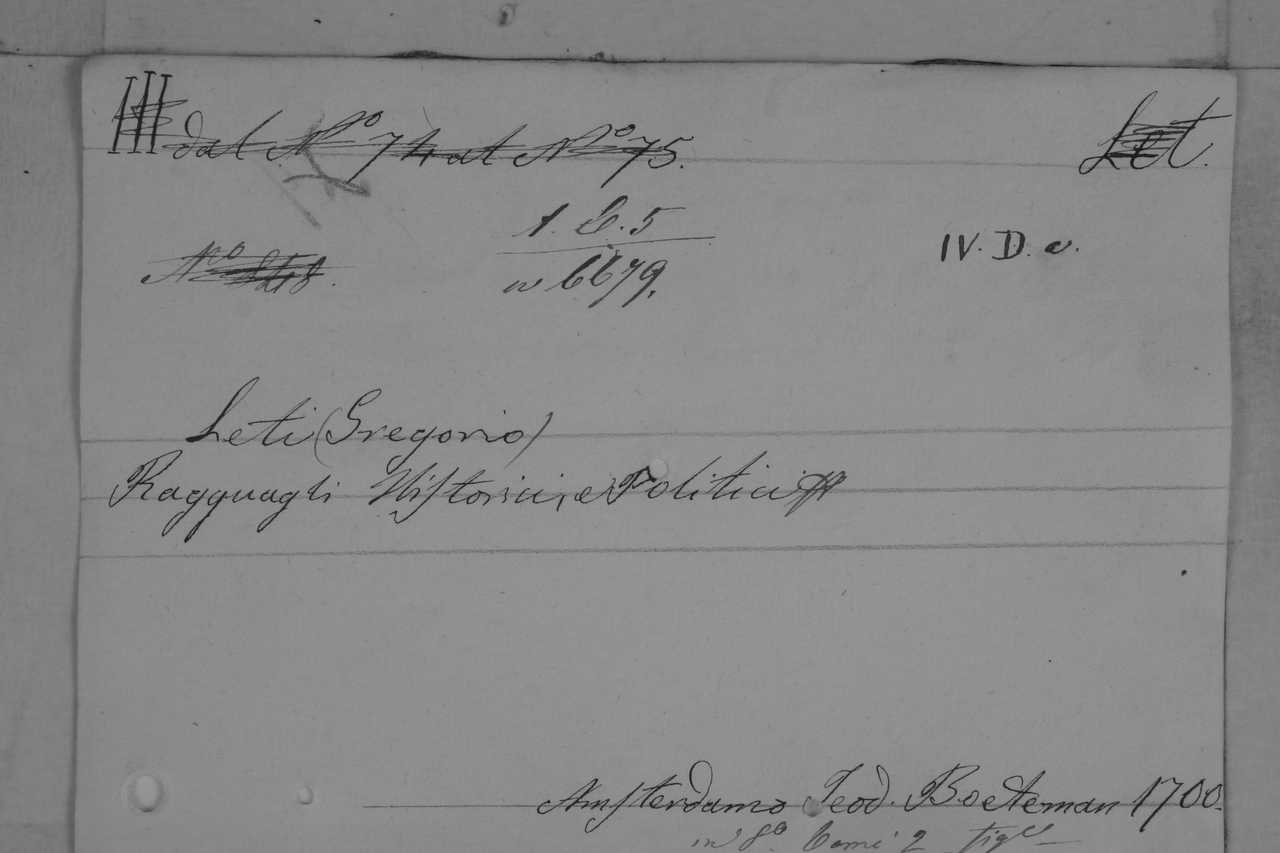 III dal Nº 74 al Nº 75. Let.
Nº 1. C. 5 IV. D. v.
6679.
Leti (Gregorio)
Ragguagli Historici, e Politici
Amsterdamo Teod. Boeteman 1700.
in 8º Tomi 2 fig